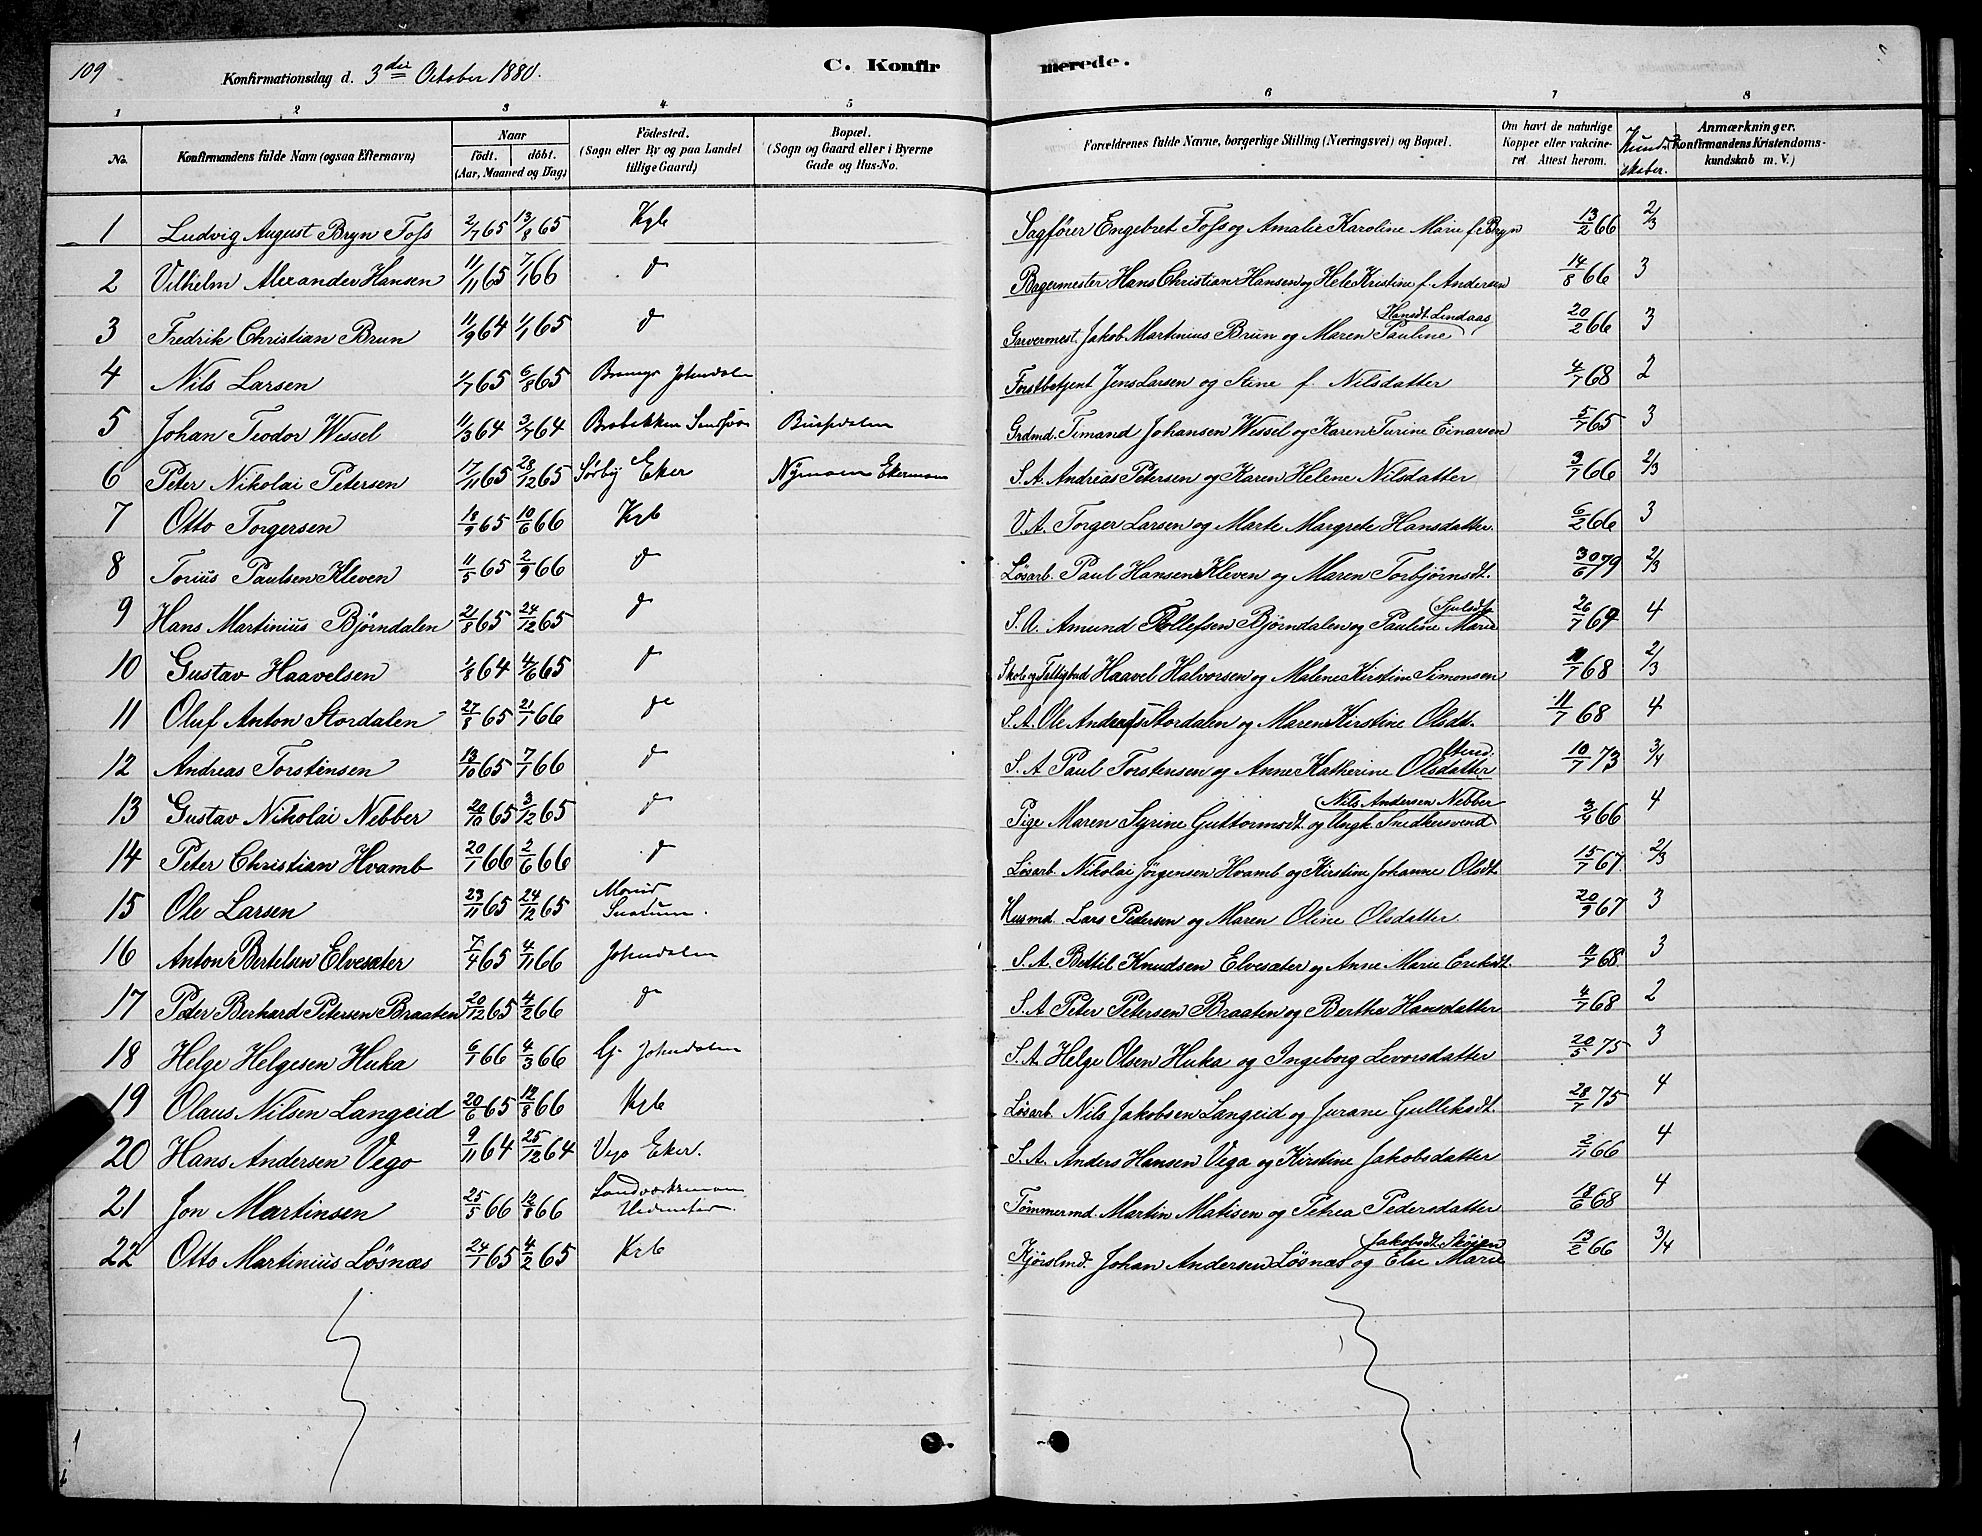 109
Konfirmationsdag d. 3die October 1880.
C. Konfir merede.
1 2 3 4 5 6 7 8
No.
Konfirmandens fulde Navn (ogsaa Efternavn)
Naar
födt. döbt.
(Aar, Maaned og Dag)
Födested.
(Sogn eller By og paa Landet
tillige Gaard)
Bopæl.
(Sogn og Gaard eller i Byerne
Gade og Hus-No.
Forældrenes fulde Navne, borgerlige Stilling (Næringsvei) og Bopæl.
Om havt de naturlige
Kopper eller vakcine-
ret. Attest herom.
Kund-
skaber.
Anmærkninger.
(Konfirmandens Kristendoms-
kundskab m. V.)
1 Ludvig August Bryn Foss 2/7 65 13/8 65 Kgb Sagfører Engebret Foss og Amalie Karoline Marie f. Bryn 13/2 66 2/3
2 Vilhelm Alexander Hansen 11/11 65 7/1 66 d Bagermester Hans Christian Hansen og Hele Kristine f. Andersen 14/8 66 3
3 Fredrik Christian Brun 11/9 64 1/1 65 d Garvermest. Jakob Martinius Brun og Maren Pauline Hansdt. Lindaas 20/2 66 3
4 Nils Larsen 1/7 65 6/8 65 Johndalen Forstbetjent Jens Larsen og Stine f. Nilsdatter 4/7 68 2
5 Johan Teodor Wessel 11/3 64 3/7 64 Brobekken Sandsvær Grdmd. Timand Johansen Wessel og Karen Turine Einarsen 5/7 65 3
6 Peter Nikolai Petersen 17/11 65 28/12 65 Sørby Eker Nymoen Ekermoen S. A. Andreas Petersen og Karen Helene Nilsdatter 3/7 66 2/3
7 Otto Torgersen 18/9 65 10/6 66 Kgb V. A. Torger Larsen og Marte Margrete Hansdatter. 6/2 66 3
8 Torius Paulsen Kleven 11/5 65 2/9 66 d Løsarb. Paul Hansen Kleven og Maren Torbjørnsdt. 30/6 79 2/3
9 Hans Martinius Bjørndalen 21/8 65 24/12 65 d S. A. Amund Tollefsen Bjørndalen og Pauline Marie Sjulsdt. 26/7 69 4
10 Gustav Haavelsen 1/8 64 4/6 65 d Haavel Halvorsen og Malene Kirstine Simonsen 11/7 68 2/3
11 Oluf Anton Stordalen 27/8 65 21/1 66 do S. A. Ole Andersen Stordalen og Maren Kirstine Olsdt. 11/7 68 4
12 Andreas Torstensen 13/10 65 7/1 66 d S. A Paul Torstensen og Anne Katherine Olsdatter 10/7 73 3/4
13 Gustav Nikolai Nebber 20/10 65 3/12 65 d Pige Maren Syrine Guttormsdt. og Ungk. Snedkersvend Nils Andersen Nebber 3/4 66 4
14 Peter Christian Hvamb 20/1 66 2/6 66 d Løsarb. Nikolai Jørgensen Hvamb og Kirstine Johanne Olsdt. 15/7 67. 2/3
15 Ole Larsen 23/11 65 24/12 65 Snarum. Husmd. Lars Pedersen og Maren Oline Olsdatter 20/9 67 3
16 Anton Bertelsen Elvesæter 7/4 65 4/11 66 Johndalen S. A. Bertil Knudsen Elvesæter og Anne Marie Eriksdt. 11/7 68 3
17 Peder Berhard Petersen Braaten 20/12 65 4/2 66 do S. A Peter Petersen Braaten og Berthe Hansdatter 4/7 68 2
18 Helge Helgesen Huka 6/1 66 4/3 66 Johndalen S. A. Helge Olsen Huka og Ingeborg Levorsdatter 20/5 75 3
19 Olaus Nilsen Langeid 20/6 65 12/8 66 Kgb Løsarb. Nils Jakobsen Langeid og Jurane Gulliksdt. 28/7 75 4
20 Hans Andersen Vego 9/11 64 25/12 64 Vego Eker. S. A. Anders Hansen Vega og Kirstine Jakobsdatter 2/11 66 4
21 Jon Martinsen 25/5 66 12/8 66 Tømmermd. Martin Matisen og Petrea Pedersdatter 18/6 68 4
22 Otto Martinius Løsnæs 24/1 65 4/2 65 Kgb Kjørslmd. Johan Andersen Løsnæs og Else Marie Jakobsdt. Skøien 13/2 66 3/4